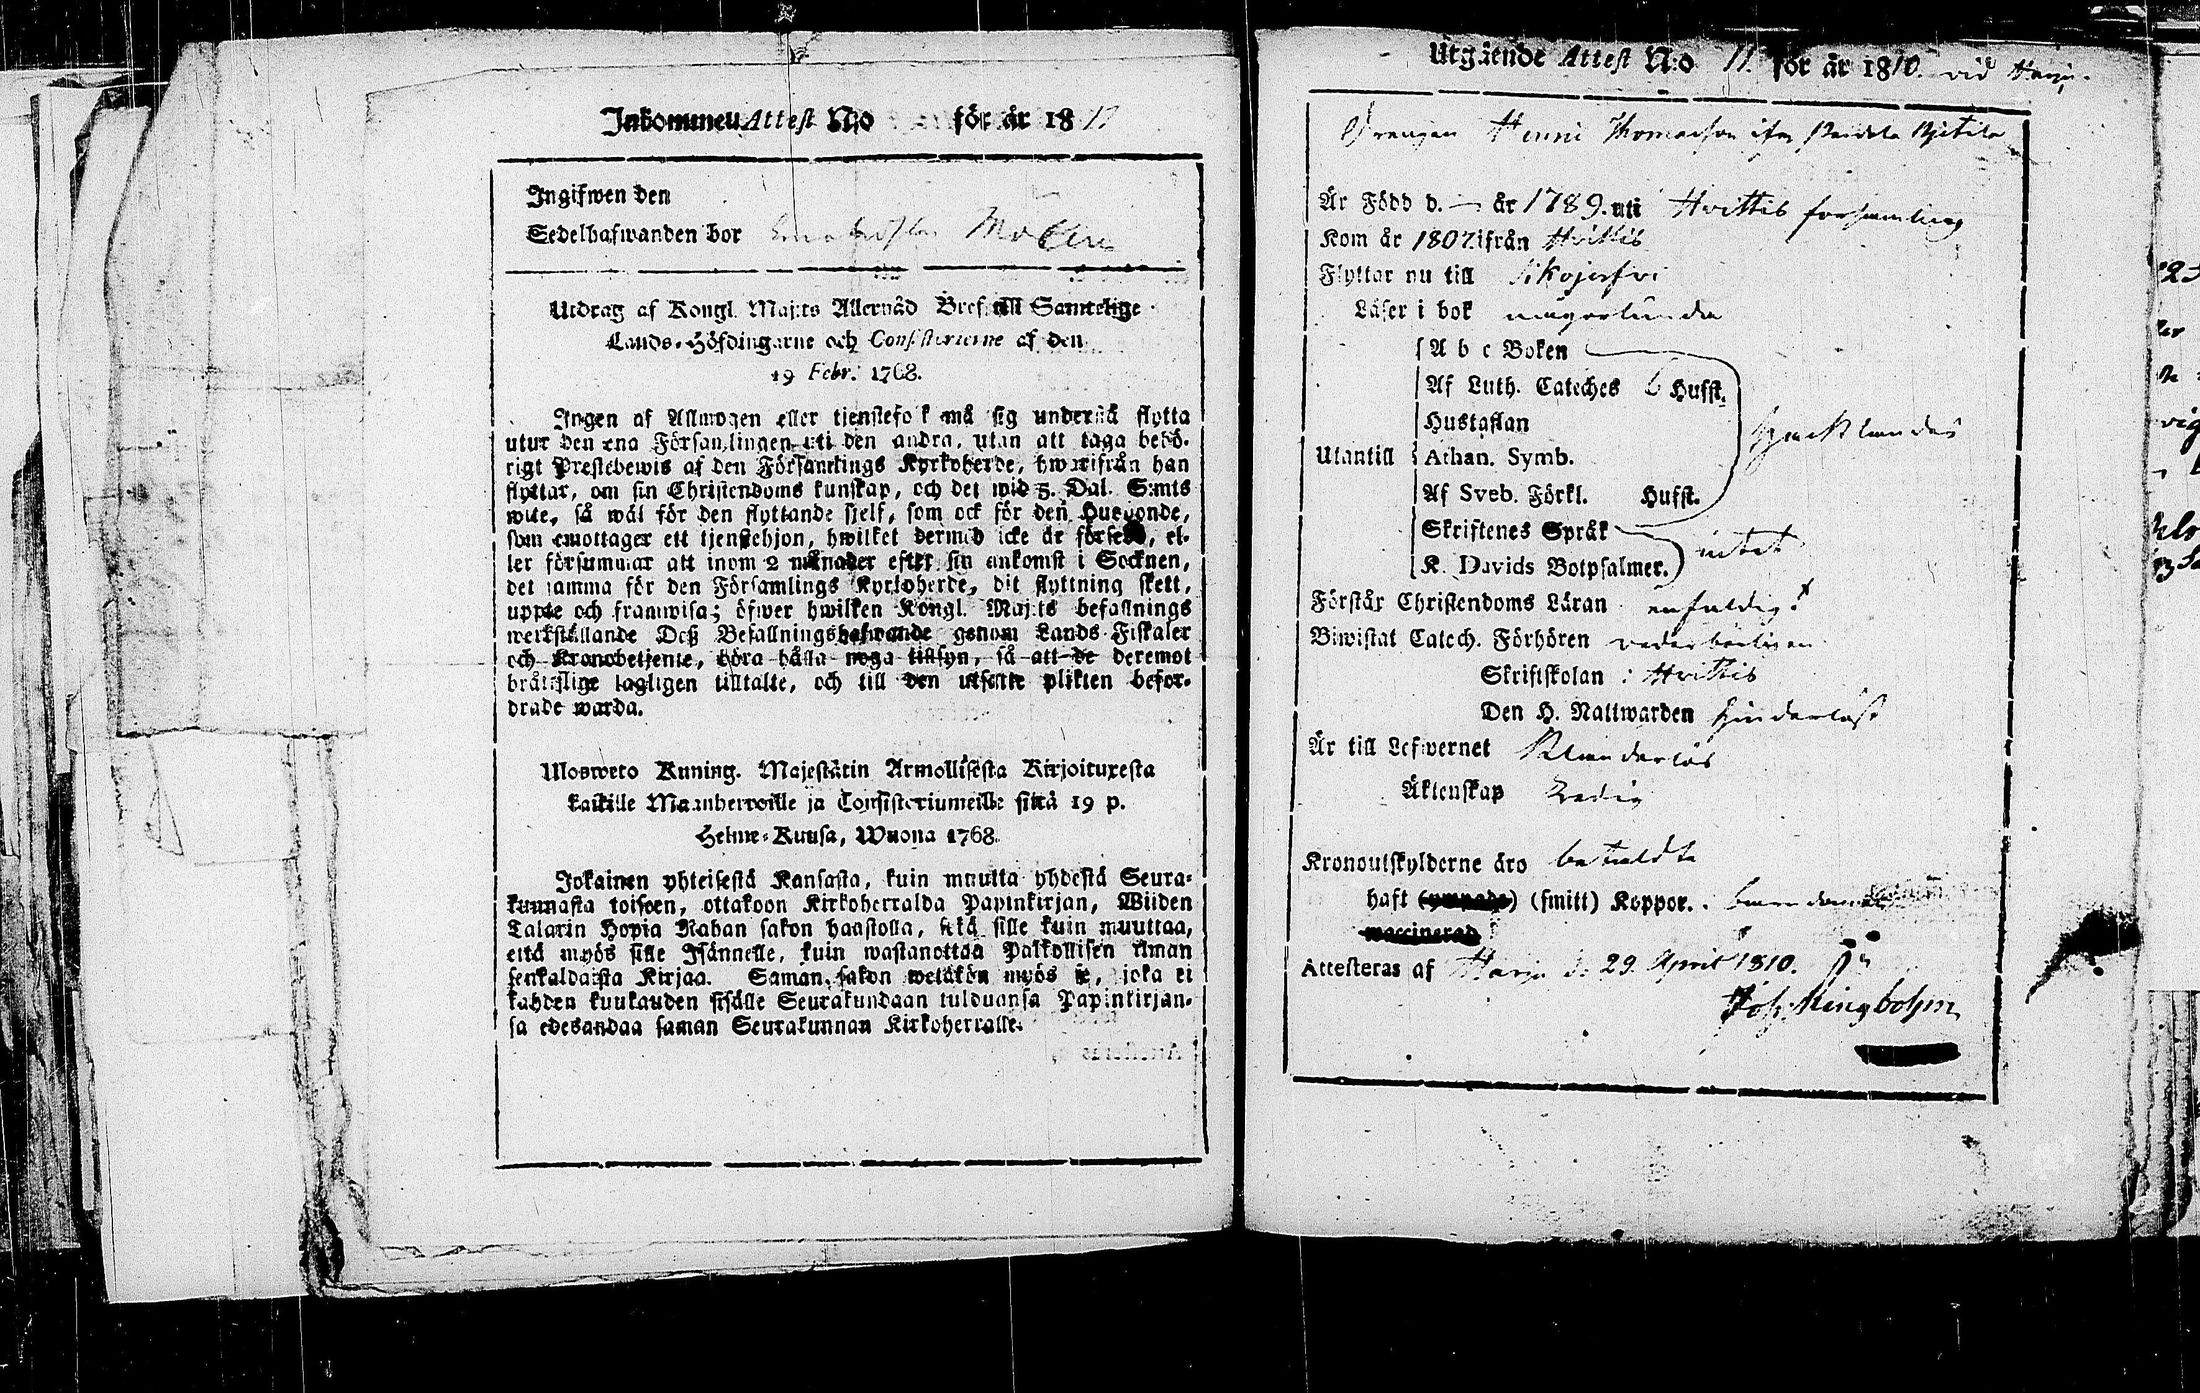 Inkommen Attest N:o för år 18
Ingifwen den
Sedelhafwanden bor
Utdrag af Kongl. Maj:ts Allernåd Bref till Samtelige
Lands-Höfdingarne och Consistorierne af den
19 Febr. 1768.
Ingen af Allmogen eller tjenstefolk må sig understå flytta
utur den ena Församlingen uti den andra, utan att taga behö-
rigt Prestebewis af den Församlings Kyrkoherde, hwarifrån han
flyttar, om sin Christendoms kunskap, och det wid 5. Dal. S:mts
wite, så wäl för den flyttande sjelf, som ock för den Husbonde,
som emottager ett tjenstehjon, hwilket dermed icke är försedd, el-
ler försummar att inom 2 månader efter sin ankomst i Socknen,
det samma för den Församlings Kyrkoherde, dit flyttning skett,
uppte och framwisa; öfwer hwilken Kongl. Maj:ts befallnings
werkställande Deß Befallningshafwande genom Lands Fiskaler
och Kronobetjente, böra hålla noga tillsyn, så att de deremot
bråttslige lagligen tilltalte, och till den utsatte plikten befor-
drade warda.
Ulosweto Kuning. Majestätin Armollisesta Kirjoituxesta
kaikille Maanherroille ja Consistoriumeille siitä 19 p.
Helme-Kuusa, Wuona 1768.
Jokainen yhteisestä Kansasta, kuin muutta yhdestä Seura-
kunnasta toiseen, ottakoon Kirkoherralda Papinkirjan, Wiiden
Talarin Hopia Rahan sakon haastolla, sekä sille kuin muuttaa,
että myös sille Isännelle, kuin wastanottaa Palkollisen ilman
senkaldaista Kirjaa. Saman sakon wetäkön myös se, joka ei
kahden kuukauden sisälle Seurakundaan tulduansa Papinkirjan-
sa edesandaa saman Seurakunnan Kirkoherralle.
Utgående Attest N:o 11. för år 1810. vid Harju.
Drengen Henric Thomasson ifrån
Är Född d. — år 1789. uti Hvittis församling
Kom år 1807 ifrån Hvittis
Flyttar nu till
Läser i bok någorlunda
A b c Boken
Af Luth. Cateches 6 Hufst.
Hustaflan
Utantill Athan. Symb.
Af Sveb. Förkl. Hufst.
Skriftenes Språk
K. Davids Botpsalmer. intet
Förstår Christendoms Läran enfaldigt
Biwistat Catech. Förhören vederbörligen
Skriftskolan i Hvittis
Den H. Nattwarden hinderlöst
Är till Lefwernet Klanderlös
Äktenskap Ledig
Kronoutskylderne äro betaldte
haft (ympade) (smitt) Koppor.
vaccinerad
Attesteras af Harju d. 29. April 1810.
Joh. Ringbohm